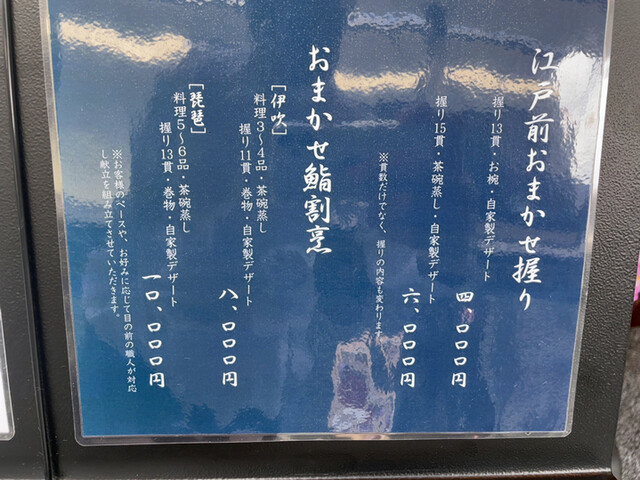 江戸前おまかせ握り
握り13貫・お椀・自家製デザート
四、〇〇〇円
握り15貫・茶碗蒸し・自家製デザート
六、〇〇〇円
※貫数だけでなく、握りの内容も変わります。
おまかせ鮨割烹
［伊吹］
料理3〜4品・茶碗蒸し
握り11貫・巻物・自家製デザート
八、〇〇〇円
［琵琶］
料理5〜6品・茶碗蒸し
握り13貫・巻物・自家製デザート
一〇、〇〇〇円
※お客様のペースや、お好みに応じて目の前の職人が対応
し献立を組み立てさせていただきます。